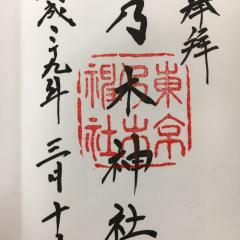 奉拝
乃木神社
東京乃木神社
平成二十九年 三月十